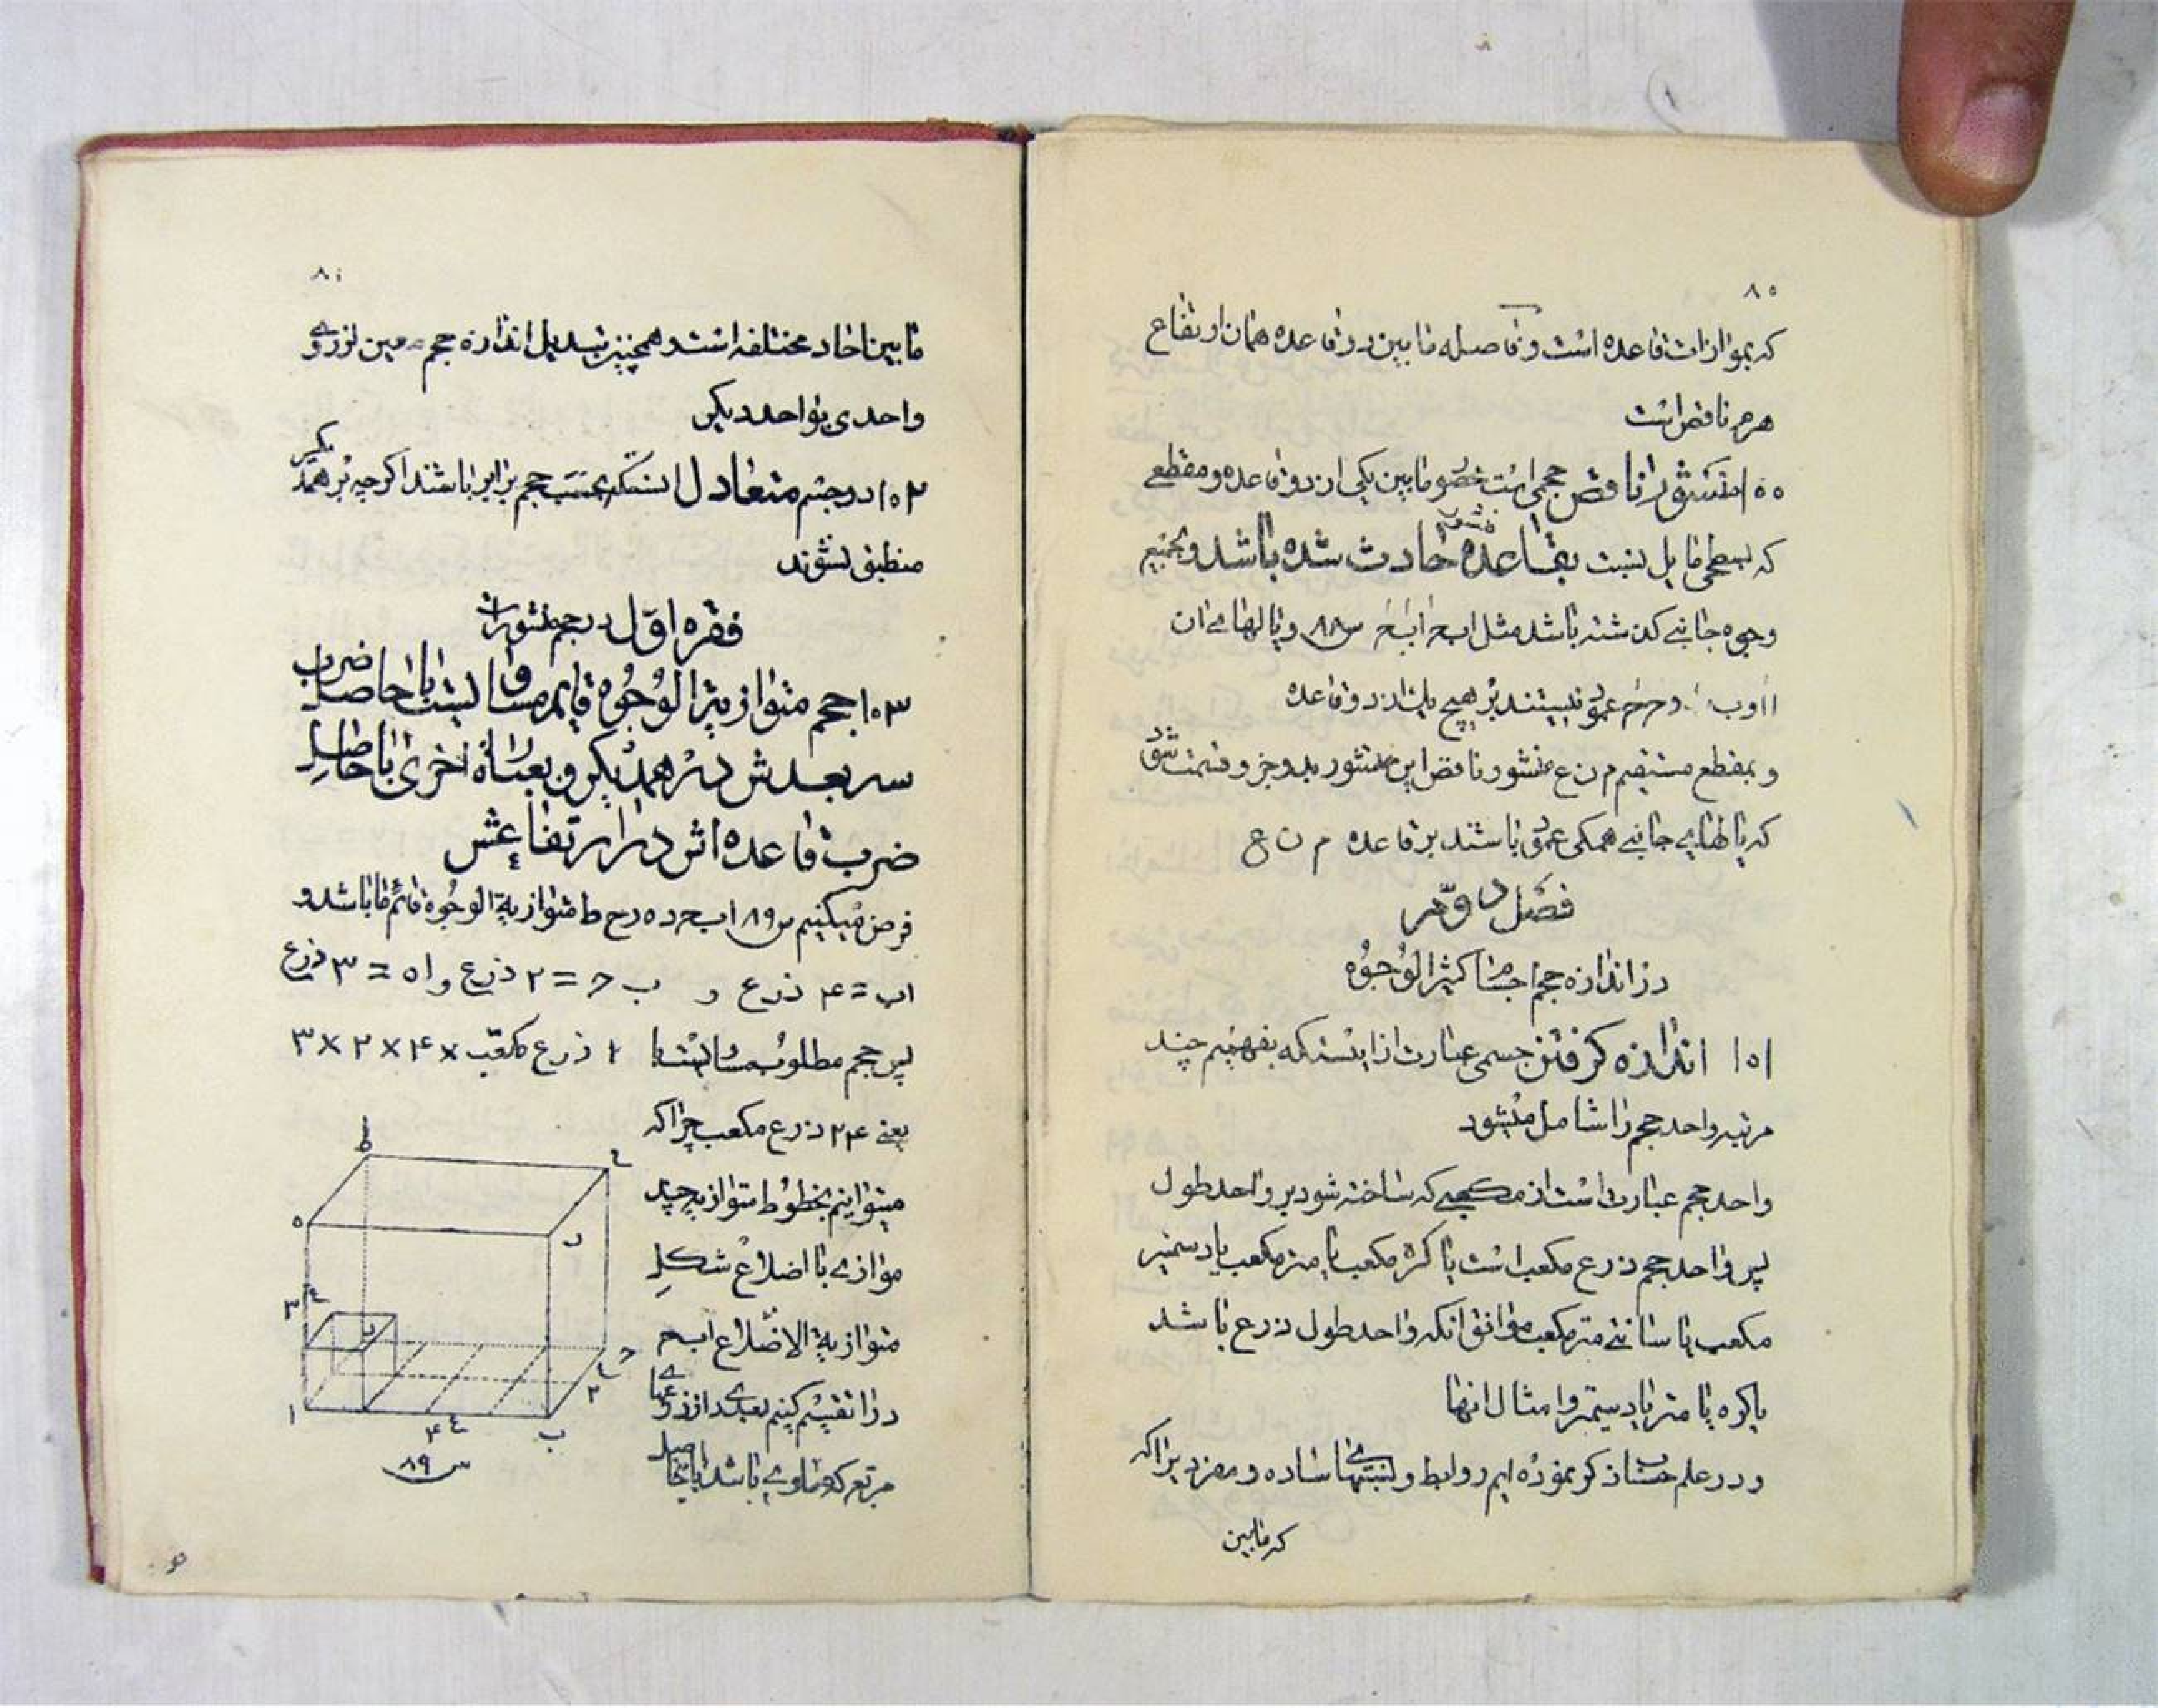 ۸۰
که بموازات قاعده است و فاصله مابین دو قاعده همان ارتفاع
هرم ناقص است
۱۰۰ منشور ناقص حجمی است محصور مابین یکی از دو قاعده و مقطعی
که بسطحی مایل بنسبت بقاعده حادث شده باشد و بجمیع
وجوه جانبی گذشته باشد مثل ابحه ابحه س۸۸ و یالهای ان
ااوب عمود نیستند بر هیچ یک از دو قاعده
و بمقطع مستقیم م ن ع منشور ناقص این منشور بدو جزو قسمت شود
که یالهای جانبی همگی عمود باشند بر قاعده م ن ع
فصل دوم
در اندازه حجم اجسام کثیر الوجوه
۱۰۱ اندازه گرفتن جسمی عبارت از اینست که بفهمیم چند
مرتبه واحد حجم را شامل میشود
واحد حجم عبارت است از مکعبی که ساخته شود بر واحد طول
پس واحد حجم ذرع مکعب است یا گره مکعب یا متر مکعب یا دسمتر
مکعب یا سانتی متر مکعب موافق انکه واحد طول ذرع باشد
یا گره یا متر یا دسیمتر و امثال انها
و در علم حساب ذکر نموده ایم روابط و نسبتهای ساده و مفرد بر آنکه
که مابین
۸۱
مابین احاد مختلفه است و همچنین تبدیل اندازه حجم معین از روی
واحدی بواحد دیگر
۱۰۲ دو جسم متعادل انست که بحسب حجم برابر باشند اگر چه بر همدیگر
منطبق نشوند
فقره اول در حجم منشورات
۱۰۳ حجم متوازیة الوجوه قایم مساویست با حاصل ضرب
سه بعدش در همدیگر و بعبارة اخری با حاصل
ضرب قاعده اش در ارتفاعش
فرض میکنیم س۸۹ ابحد ه رح ط متوازیة الوجوه قائم ما باشد و
اب = ۴ ذرع و ب ح = ۲ ذرع و اه = ۳ ذرع
پس حجم مطلوب مساویست با ۱ ذرع مکعب × ۴ × ۲ × ۳
یعنی ۲۴ ذرع مکعب چرا که
میتوانیم بخطوط متوازیه چند
موازی با اضلاع شکل
متوازیة الاضلاع ابح
د را تقسیم کنیم بعددی از ذرعهای
مربع که مساوی باشد با حاصل
ط
ح
ه
ر
۳
ع
د
ح
۱
۲
۴ ع
ب
س ۸۹